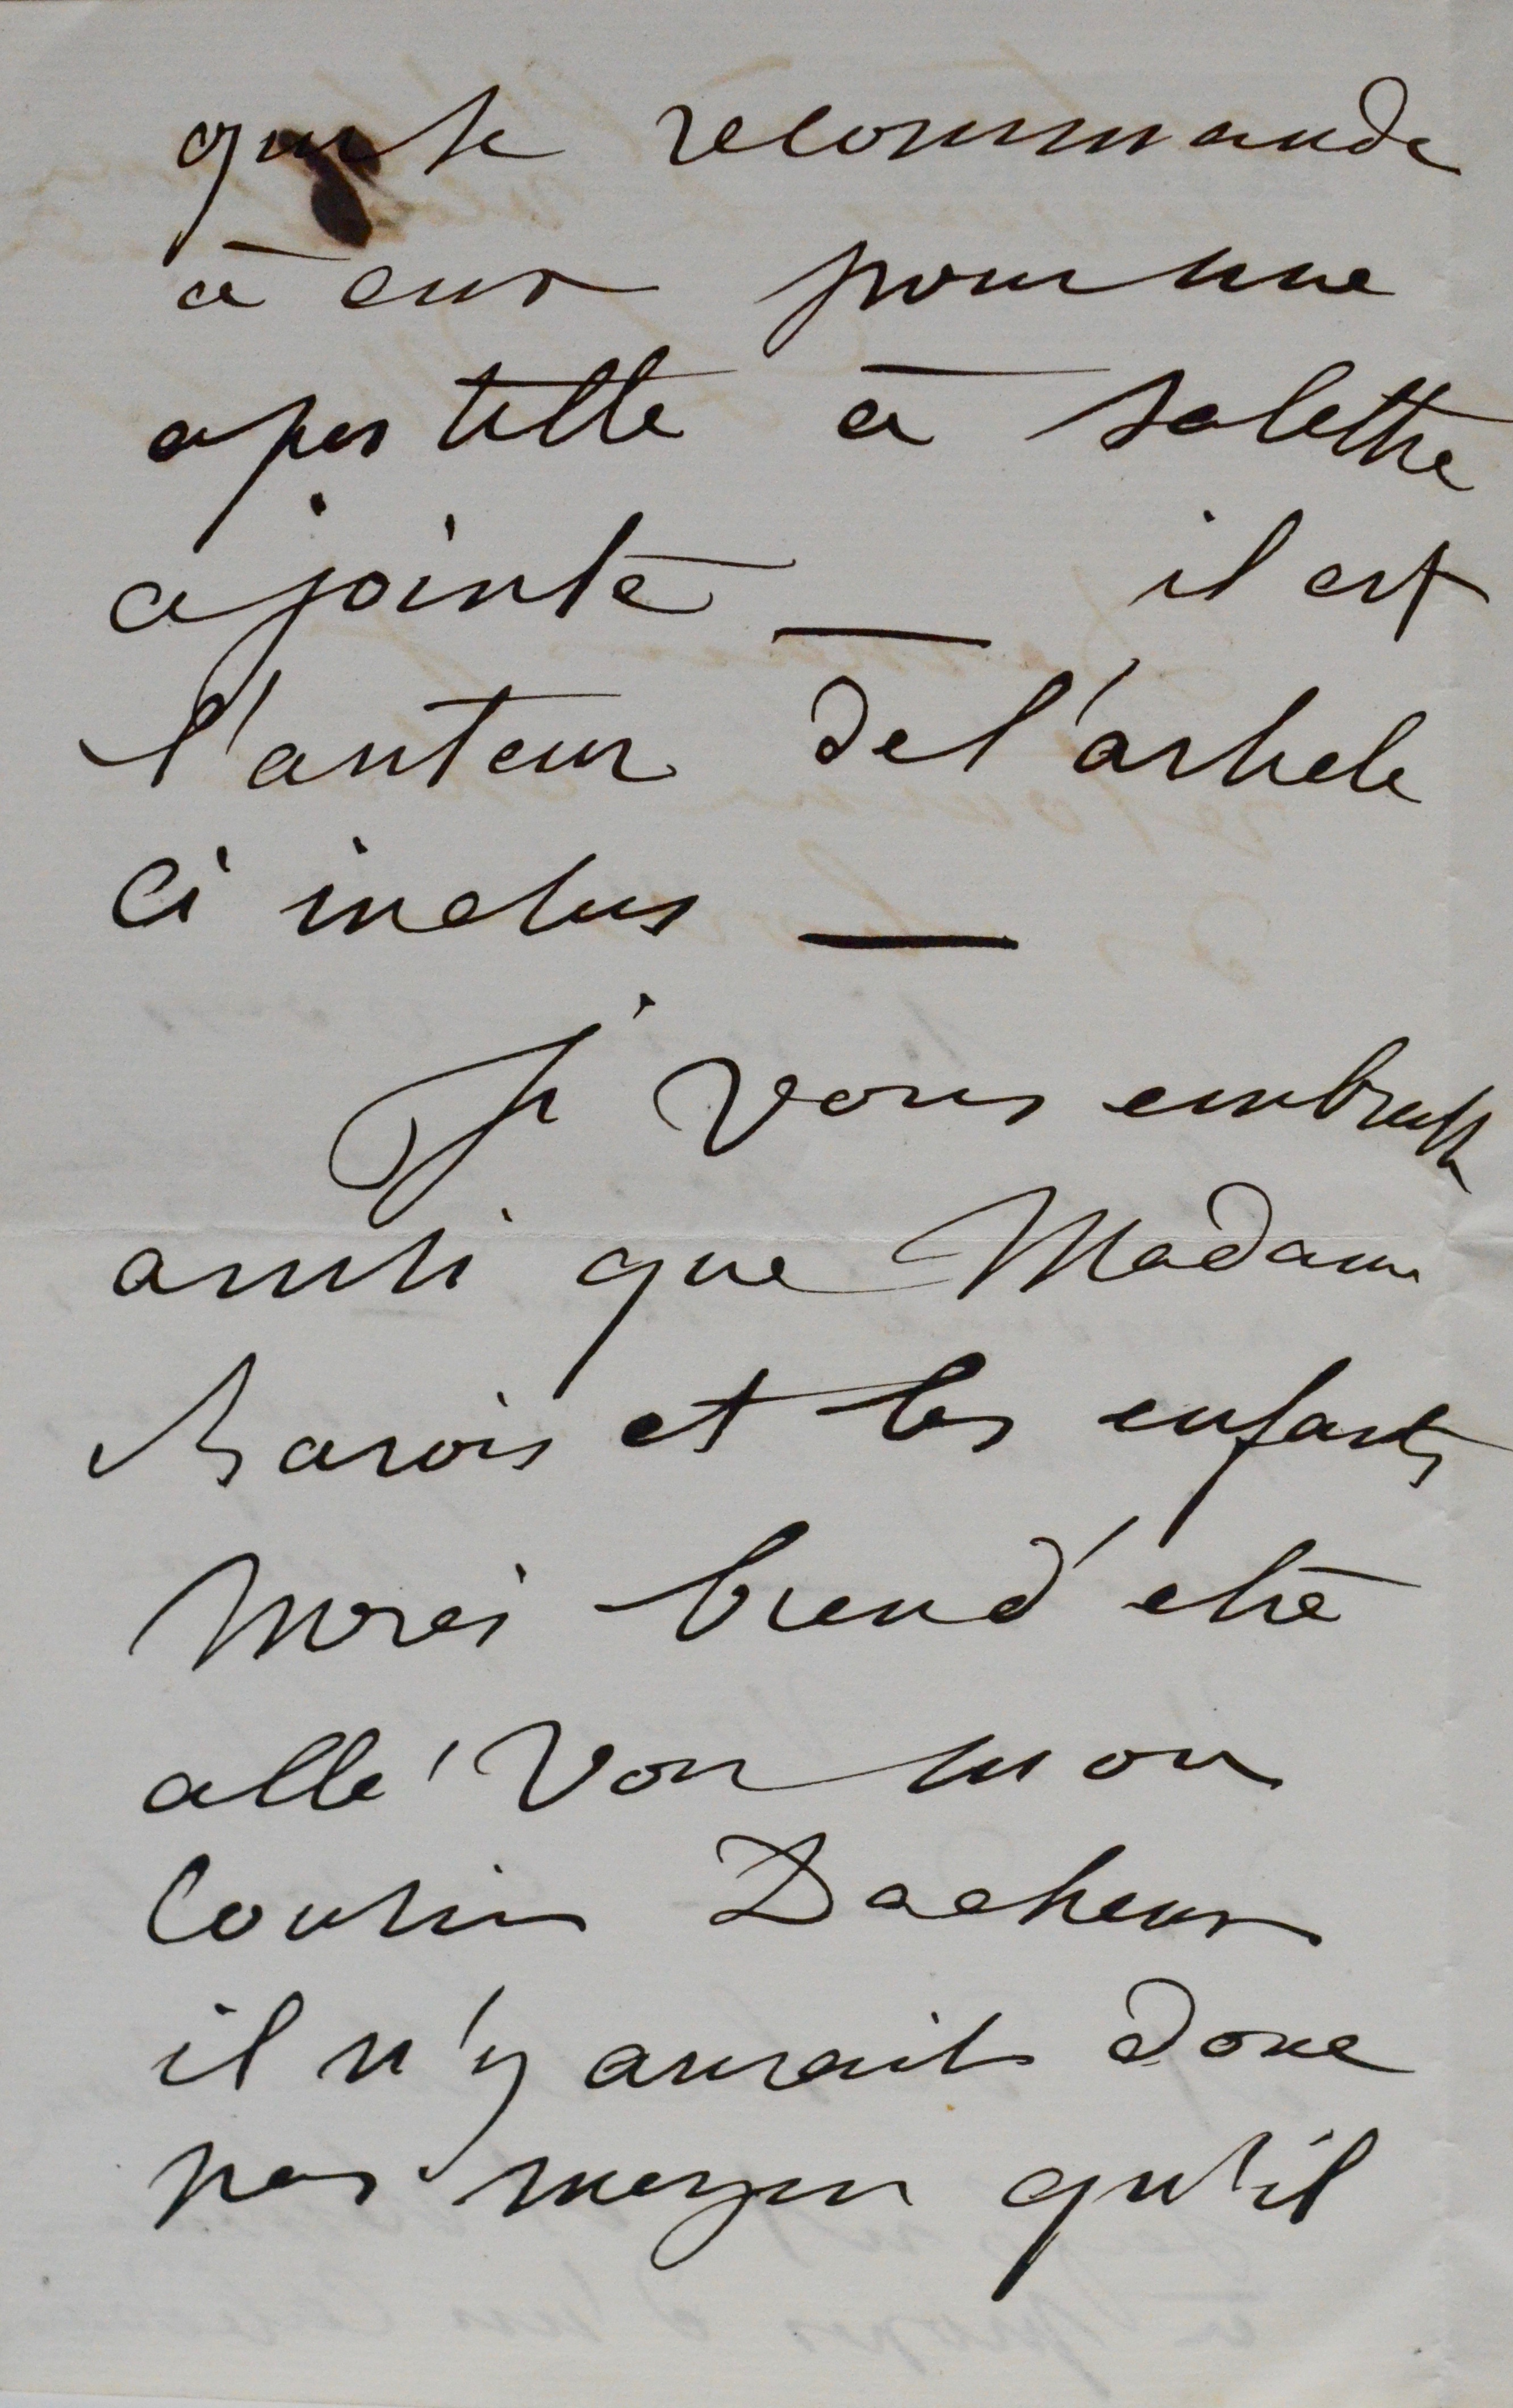 qui se recommande
à eux pour une
apostille à sa lettre
ajointe — il est
l'auteur de l'article
ci inclus —
Je vous embrasse
ainsi que Madame
Barois et les enfants
Merci bien d'être
allé voir mon
Cousin Dacheux
il n'y aurait donc
pas moyen qu'il